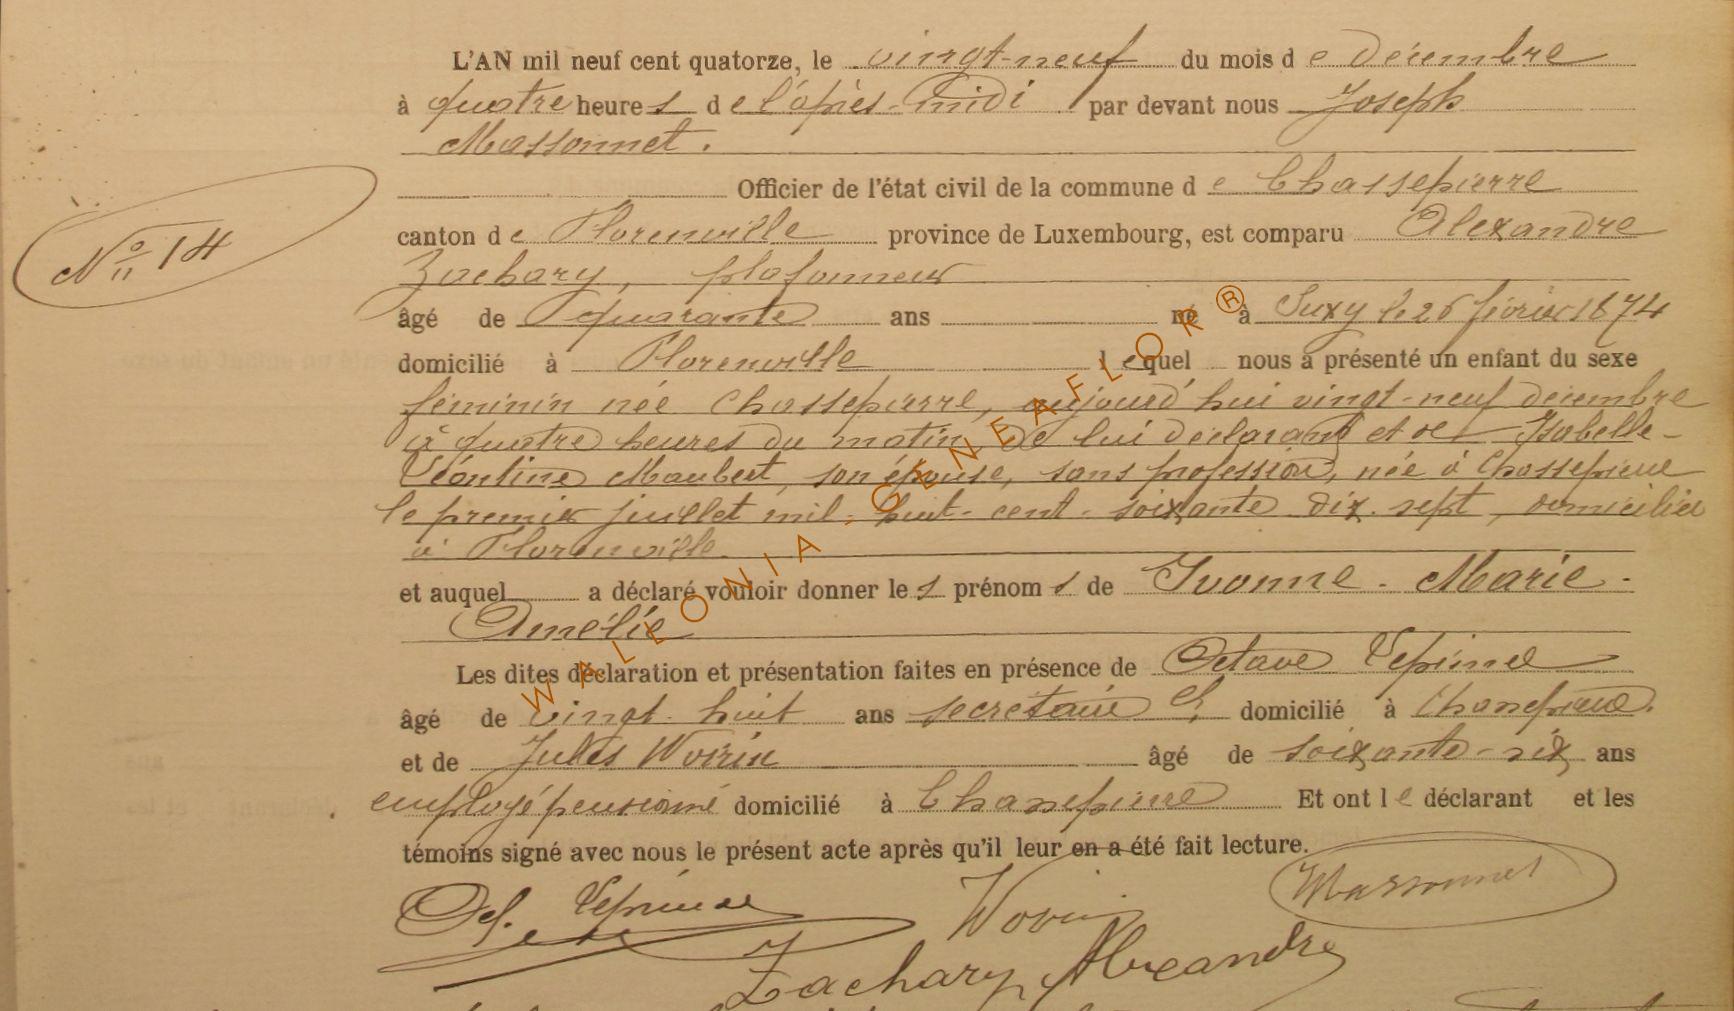 L'AN mil neuf cent quatorze, le vingt-neuf du mois de Décembre
à quatre heures de l'après-midi par devant nous Joseph
Massonnet.
Officier de l'état civil de la commune de Chassepierre
N° 14
canton de Florenville province de Luxembourg, est comparu Alexandre
Zachary, plafonneur
âgé de quarante ans né à Suxy le 26 février 1874
domicilié à Florenville lequel nous a présenté un enfant du sexe
féminin née Chassepierre, aujourd'hui vingt-neuf décembre
à quatre heures du matin, de lui déclarant et de Isabelle-
Léontine Maubert, son épouse, sans profession, née à Chassepierre
le premier juillet mil-huit-cent-soixante-dix-sept, domiciliée
à Florenville.
et auquel a déclaré vouloir donner les prénoms de Yvonne-Marie-
Amélie
Les dites déclaration et présentation faites en présence de Octave Lepinne
âgé de vingt-huit ans secrétaire domicilié à Chassepierre.
et de Jules Woirin âgé de soixante-six ans
employé pensionné domicilié à Chassepierre Et ont le déclarant et les
témoins signé avec nous le présent acte après qu'il leur en a été fait lecture.
Massonnet
Zachary Alexandre
WALLONIA-GENEAFLOR®